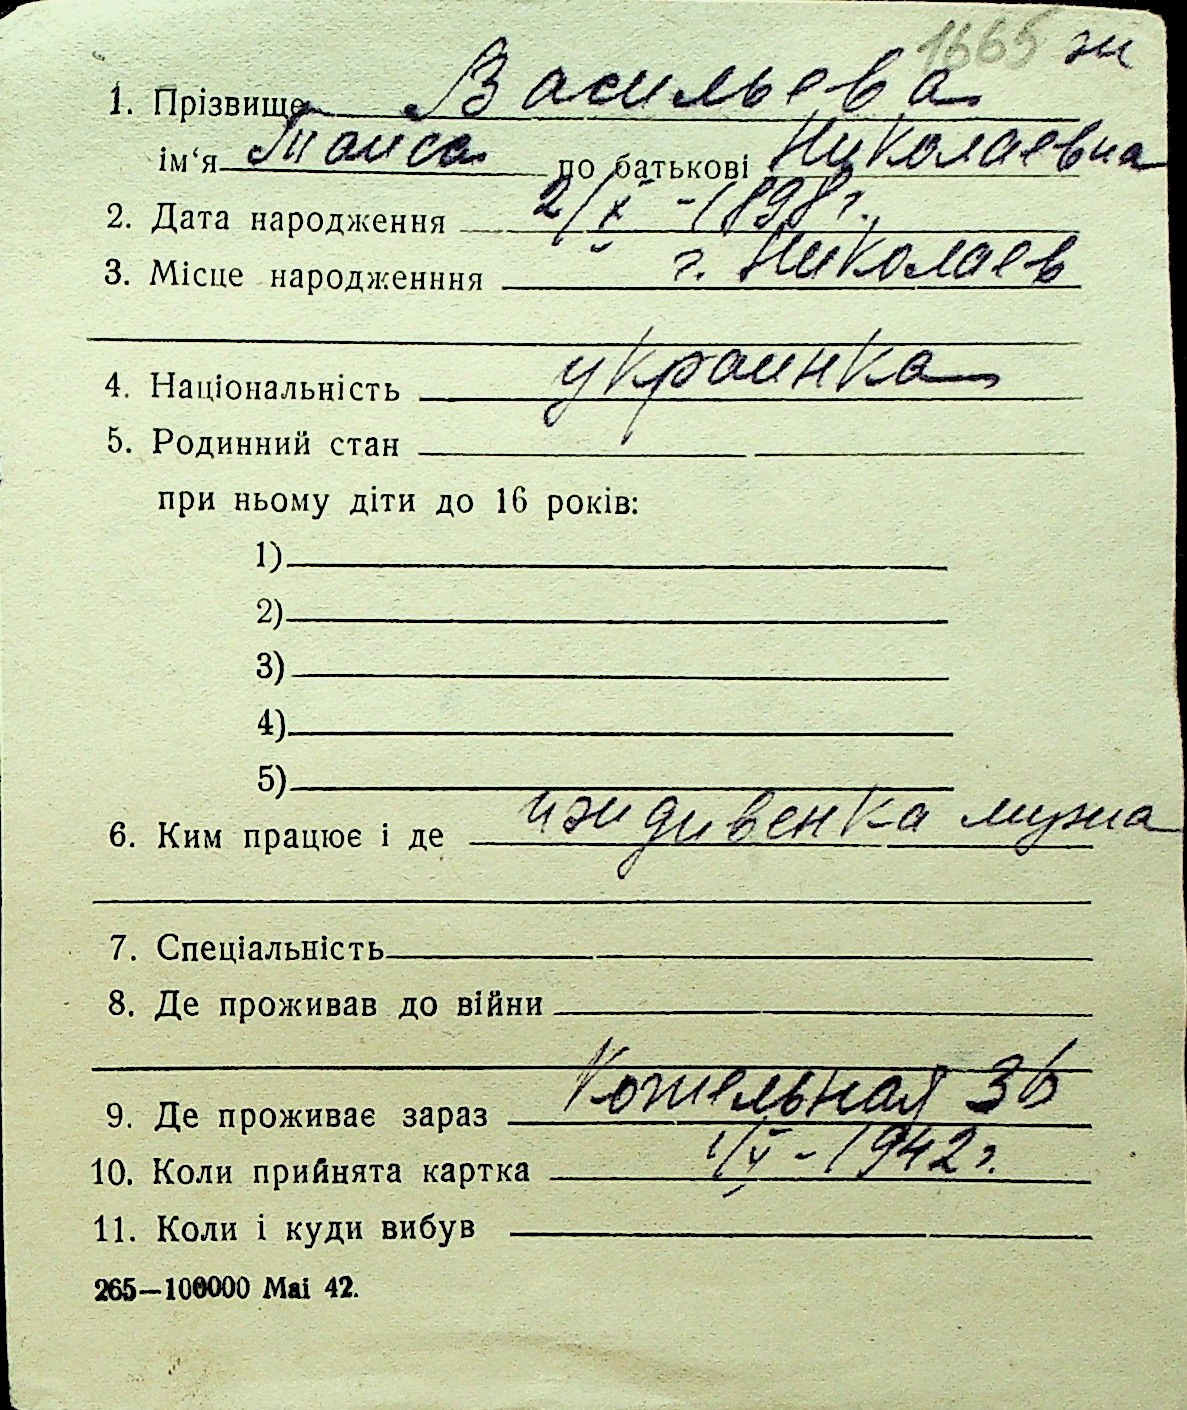 1665 ж
1. Прізвище Васильева
ім‘я Таиса по батькові Николаевна
2. Дата народження 2/X - 1898 г.
3. Місце народженння г. Николаев
4. Національність украинка
5. Родинний стан
при ньому діти до 16 років:
1)
2)
3)
4)
5)
6. Ким працює і де иждивенка мужа
7. Спеціальність
8. Де проживав до війни
9. Де проживає зараз Котельная 36
10. Коли прийнята картка 1/V - 1942 г.
11. Коли і куди вибув
265—100000 Mai 42.